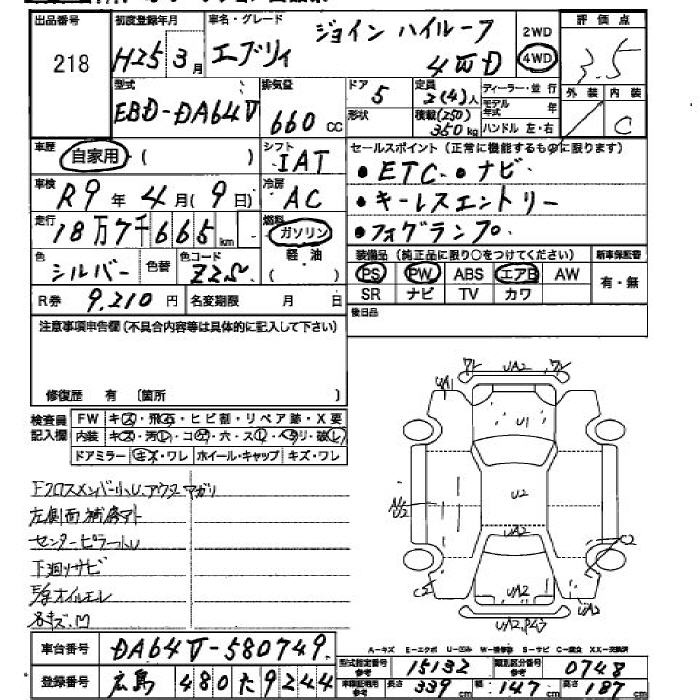 出品番号 218
初度登録年月 H25 3月
車名・グレード エブリィ ジョイン ハイルーフ 4WD
2WD 4WD
評価点 3.5
型式 EBD-DA64V
排気量 660 cc
ドア 5
形状
定員 2(4)人
積載 (250) 350 kg
ディーラー・並行
モデル年式 年
ハンドル 左・右
外装 内装 C
車歴 自家用 ( )
シフト IAT
セールスポイント (正常に機能するものに限ります)
・ETC ・ナビ
・キーレスエントリー
・フォグランプ
車検 R9年4月(9日)
冷房 AC
走行 18万7千665 km
燃料 ガソリン 軽油
色 シルバー 色替 色コード Z2S
装備品 (純正品に限り○をつけてください) 新車保証書
PS PW ABS エアB AW 有・無
SR ナビ TV カワ
R券 9,210円 名変期限 月 日
後日品
注意事項申告欄 (不具合内容等は具体的に記入して下さい)
修復歴 有 〔箇所 〕
検査員記入欄
FW キズ・飛石・ヒビ割・リペア跡・X要
内装 キズ・汚レ・コゲ・穴・スレ・ヘタリ・破レ
ドアミラー キズ・ワレ ホイール・キャップ キズ・ワレ
FクロスメンバーU、アウターマガリ
左側面補修アト
センターピラーU
下廻リサビ
各キズ、凹
UA2
UA1
U1
U2
UA2
UA2
C2
C2
車台番号 DA64V-580749
登録番号 広島 480 た 9244
A-キズ E-エクボ U-凹み W-補修跡 S-サビ C-腐食 XX-交換済
型式指定番号 15132 類別区分番号 0748
車検証記載用参考 長さ 339 cm 幅 147 cm 高さ 187 cm